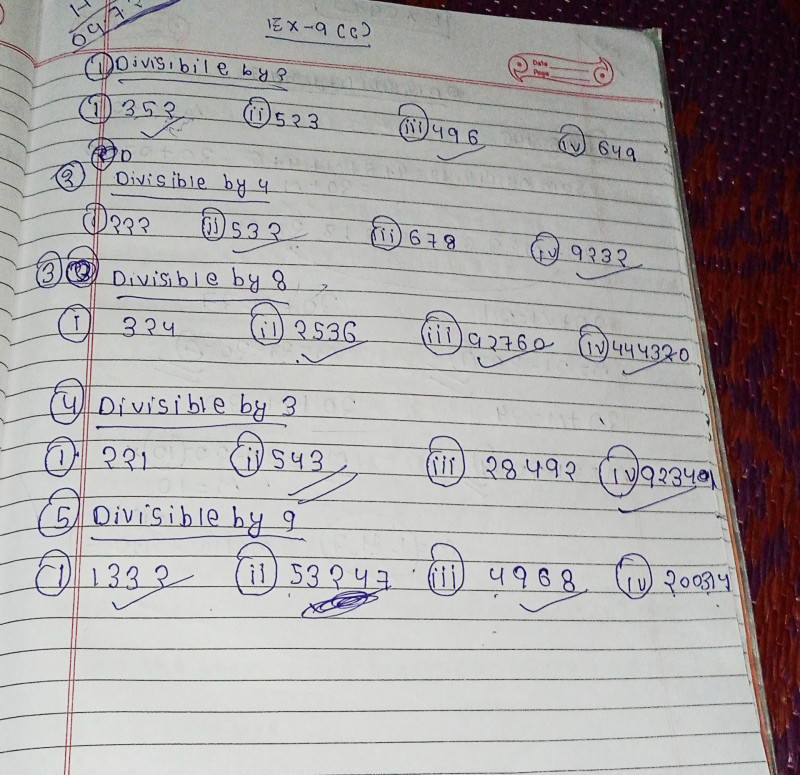 Ex-9(C)
Date
Page
① Divisibile by 2
(i) 352 (ii) 523 (iii) 496 (iv) 649
② Divisible by 4
(i) 222 (ii) 532 (iii) 678 (iv) 9232
③ Divisible by 8
(i) 324 (ii) 2536 (iii) 92760 (iv) 444320
④ Divisible by 3
(i) 221 (ii) 543 (iii) 28492 (iv) 92349
⑤ Divisible by 9
(i) 1332 (ii) 53247 (iii) 4968 (iv) 200314